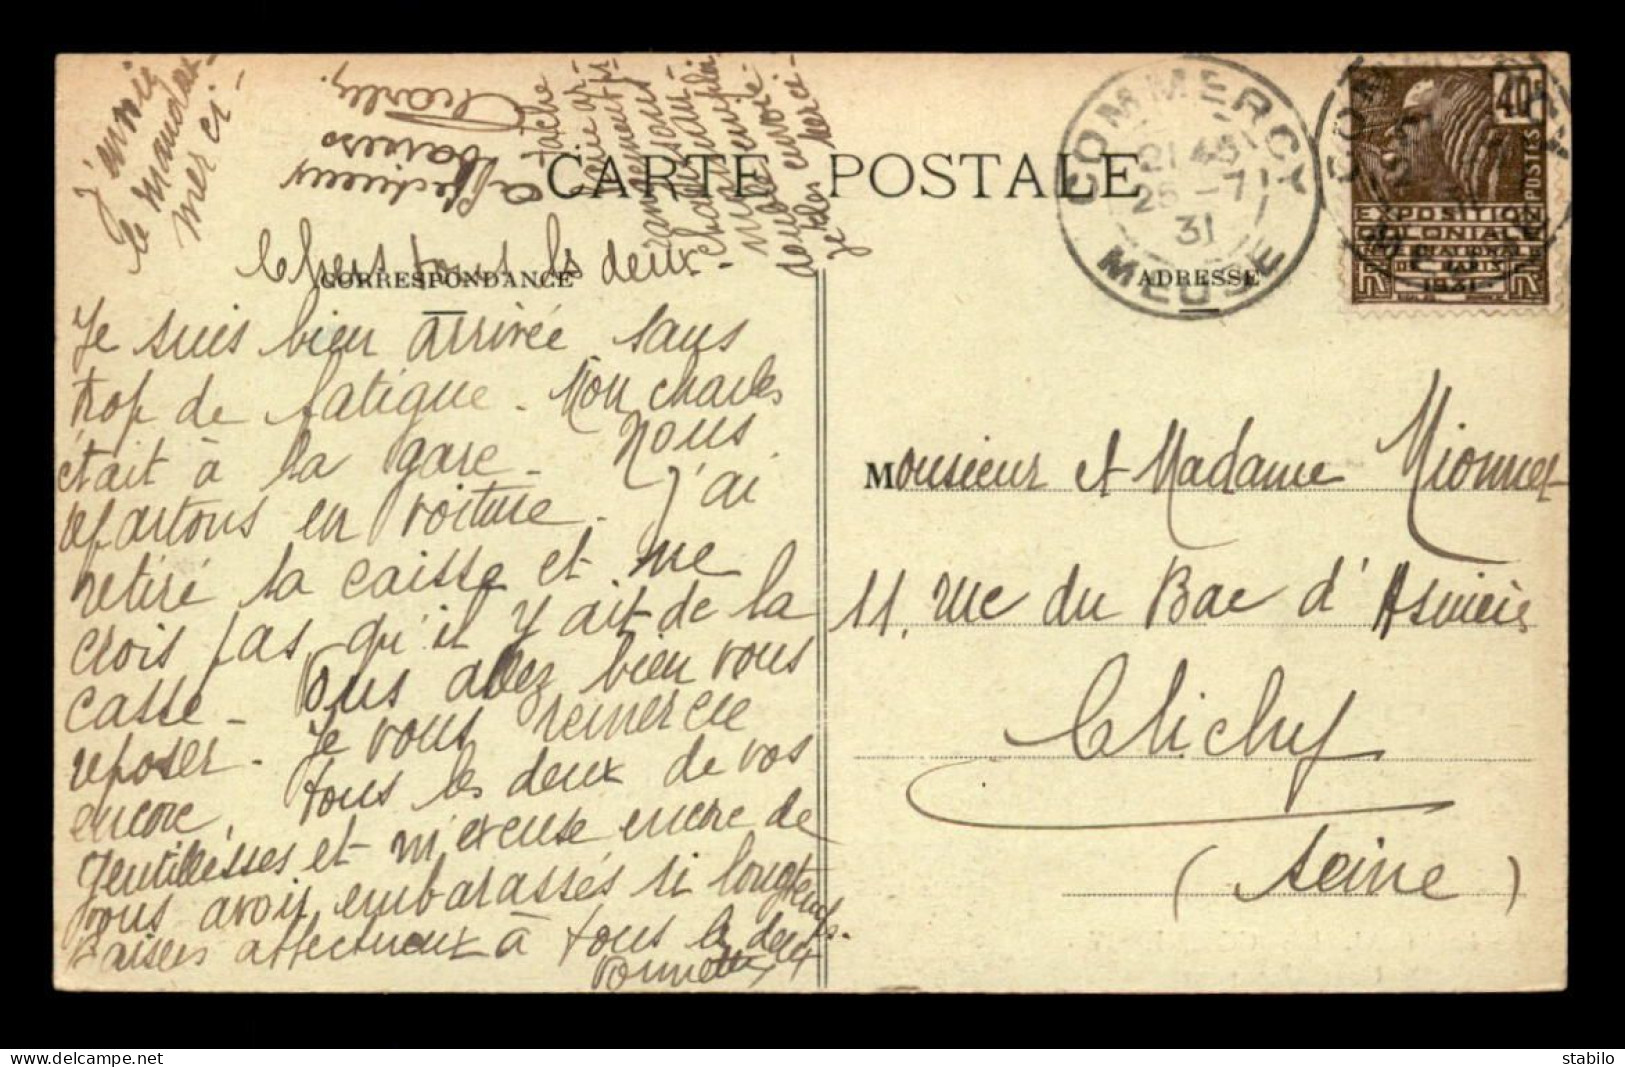 J'envoie
le mandat-
merci -
Affectueux
baisers
Charley
tache
faire ar-
rangement pr
chaussure
me remplir
je les
merci -
CARTE POSTALE
COMMERCY
21
25 - 7
31
MEUSE
40c
POSTES
EXPOSITION
COLONIALE
INTERNATIONALE
DE PARIS
1931
Chers tous les deux -
CORRESPONDANCE
ADRESSE
Je suis bien arrivée sans
trop de fatigue. Mon Charles
était à la gare - Nous
repartons en voiture. J'ai
retiré la caisse et ne
crois pas qu'il y ait de la
casse - Vous allez bien vous
reposer - Je vous remercie
encore, tous les deux de vos
gentillesses et m'excuse encore de
vous avoir embarassés si longtemps.
Baisers affectueux à tous les deux
Monsieur et Madame Mionnet
11, rue du Bac d'Asnières
Clichy
(Seine)
stabilo
www.delcampe.net